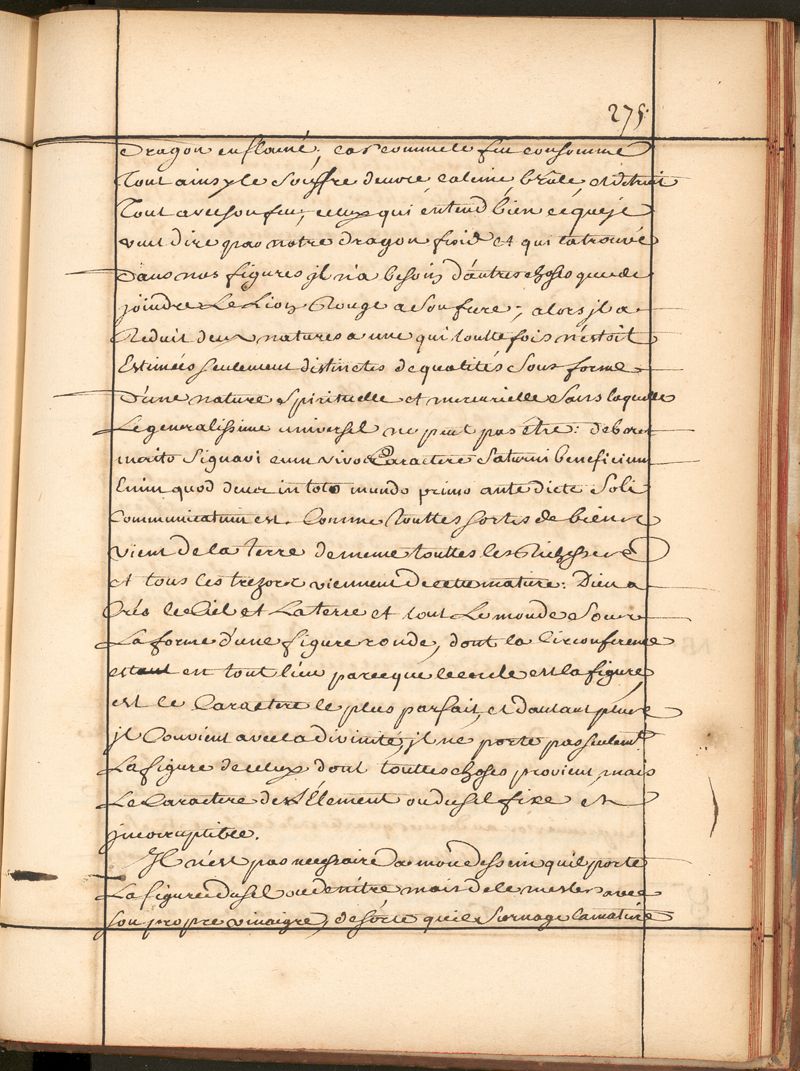 275.
Dragon enflamé, car comme le feu consomme
Tout ainsy le souffre devore, calcine, brûle, et detruit
Tout avec son feu, celuy qui entend bien ce que je
veut dire par notre dragon froid et qui la trouvé
Dans nos figures jl n'a besoin d'autres choses que de
joindre Le Lion Rouge a son fure, alors jl a
Reduit deux natures a une qui toutte fois n'estoit
Estimées seulement distinctes de qualités sous forme
D'une nature spirituelle et mercurielle sans laquelle
Le generalissime universel ne peut pas être: de
merito signavi eum vivo Caractere Saturni beneficium
Enim quod in toto mundo primo ante dicte Soli
Communicatum est. Comme touttes sortes de biens
vient de la terre de meme touttes les Richesses
et tous les trezors viennent de cette matiere: Dieu a
Créé le Ciel et La terre et tout Le monde sous
La forme d'une figure ronde, dont la Circonference
est en tout lieu parceque le cercle est la figure
est le Caractere le plus parfait, et d'autant plus
jl Convient avec la divinité, jl ne porte pas seulemt
La figure de celuy dont touttes choses provient, mais
Le Caractere de L'Element ou du sel fixe et
jncorruptible.
Jl n'est pas necessaire a mon dessein qu'il porte
La figure du sel ou de nitre mais de le mesler avec
son propre vinaigre, de sorte qu'il surnage la matiere